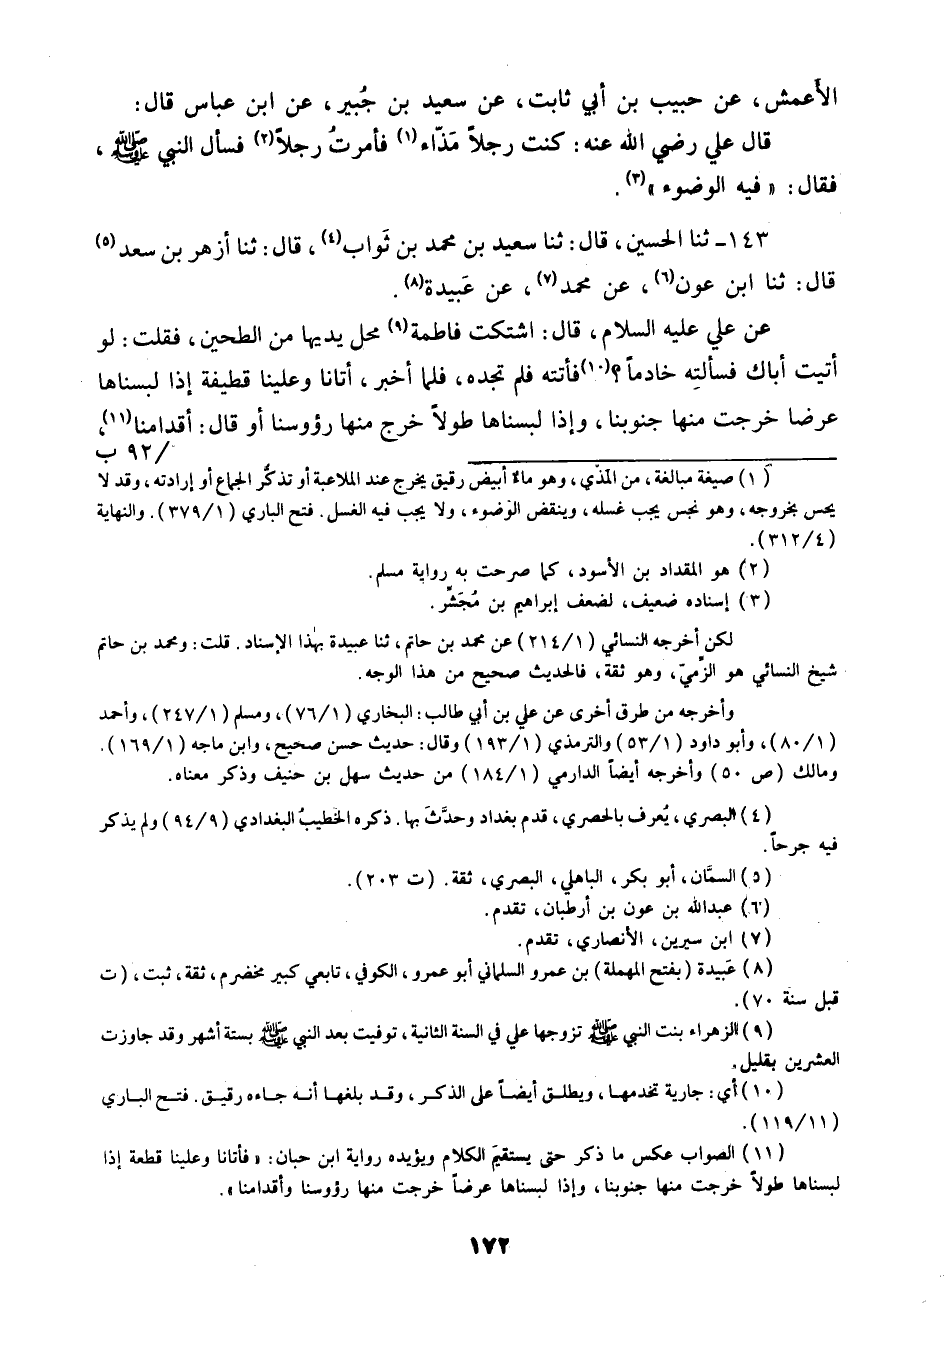 الأعمش، عن حبيب بن أبي ثابت، عن سعيد بن جُبير، عن ابن عباس قال:
قال علي رضي الله عنه: كنت رجلاً مَذّاء(١) فأمرتُ رجلاً(٢) فسأل النبي ﷺ،
فقال: « فيه الوضوء »(٣).
١٤٣ـ ثنا الحسين، قال: ثنا سعيد بن محمد بن ثَواب(٤)، قال: ثنا أزهر بن سعد(٥)
قال: ثنا ابن عون(٦)، عن محمد(٧)، عن عَبيدة(٨).
عن علي عليه السلام، قال: اشتكت فاطمة(٩) محل يديها من الطحين، فقلت: لو
أتيت أباك فسألتِه خادماً؟(١٠)فأتته فلم تجده، فلما أخبر، أتانا وعلينا قطيفة إذا لبسناها
عرضا خرجت منها جنوبنا، وإذا لبسناها طولاً خرج منها رؤوسنا أو قال: أقدامنا(١١)،
/٩٢ ب
(١) صيغة مبالغة، من المَذْي، وهو ماءٌ أبيض رقيق يخرج عند الملاعبة أو تذكُّر الجماع أو إرادته، وقد لا
يحس بخروجه، وهو نجس يجب غسله، وينقض الوضوء، ولا يجب فيه الغسل. فتح الباري (٣٧٩/١). والنهاية
(٣١٢/٤).
(٢) هو المقداد بن الأسود، كما صرحت به رواية مسلم.
(٣) إسناده ضعيف، لضعف إبراهيم بن مُجَشِّر.
لكن أخرجه النسائي (٢١٤/١) عن محمد بن حاتم، ثنا عبيدة بهذا الإسناد. قلت: ومحمد بن حاتم
شيخ النسائي هو الزِّميّ، وهو ثقة، فالحديث صحيح من هذا الوجه.
وأخرجه من طرق أخرى عن علي بن أبي طالب: البخاري (٧٦/١)، ومسلم (٢٤٧/١)، وأحمد
(٨٠/١)، وأبو داود (٥٣/١) والترمذي (١٩٣/١) وقال: حديث حسن صحيح، وابن ماجه (١٦٩/١).
ومالك (ص ٥٠) وأخرجه أيضاً الدارمي (١٨٤/١) من حديث سهل بن حنيف وذكر معناه.
(٤) البصري، يُعرف بالحصري، قدم بغداد وحدَّثَ بها. ذكره الخطيبُ البغدادي (٩٤/٩) ولم يذكر
فيه جرحاً.
(٥) السمَّان، أبو بكر، الباهلي، البصري، ثقة. (ت ٢٠٣).
(٦) عبدالله بن عون بن أرطبان، تقدم.
(٧) ابن سيرين، الأنصاري، تقدم.
(٨) عَبيدة (بفتح المهملة) بن عمرو السلماني أبو عمرو، الكوفي، تابعي كبير مخضرم، ثقة، ثبت، (ت
قبل سنة ٧٠).
(٩) الزهراء بنت النبي ﷺ تزوجها علي في السنة الثانية، توفيت بعد النبي ﷺ بستة أشهر وقد جاوزت
العشرين بقليل.
(١٠) أي: جارية تخدمها، ويطلق أيضاً على الذكر، وقد بلغها أنه جاءه رقيق. فتح الباري
(١١٩/١١).
(١١) الصواب عكس ما ذكر حتى يستقيمَ الكلام ويؤيده رواية ابن حبان: « فأتانا وعلينا قطعة إذا
لبسناها طولاً خرجت منها جنوبنا، وإذا لبسناها عرضاً خرجت منها رؤوسنا وأقدامنا ».
١٧٢